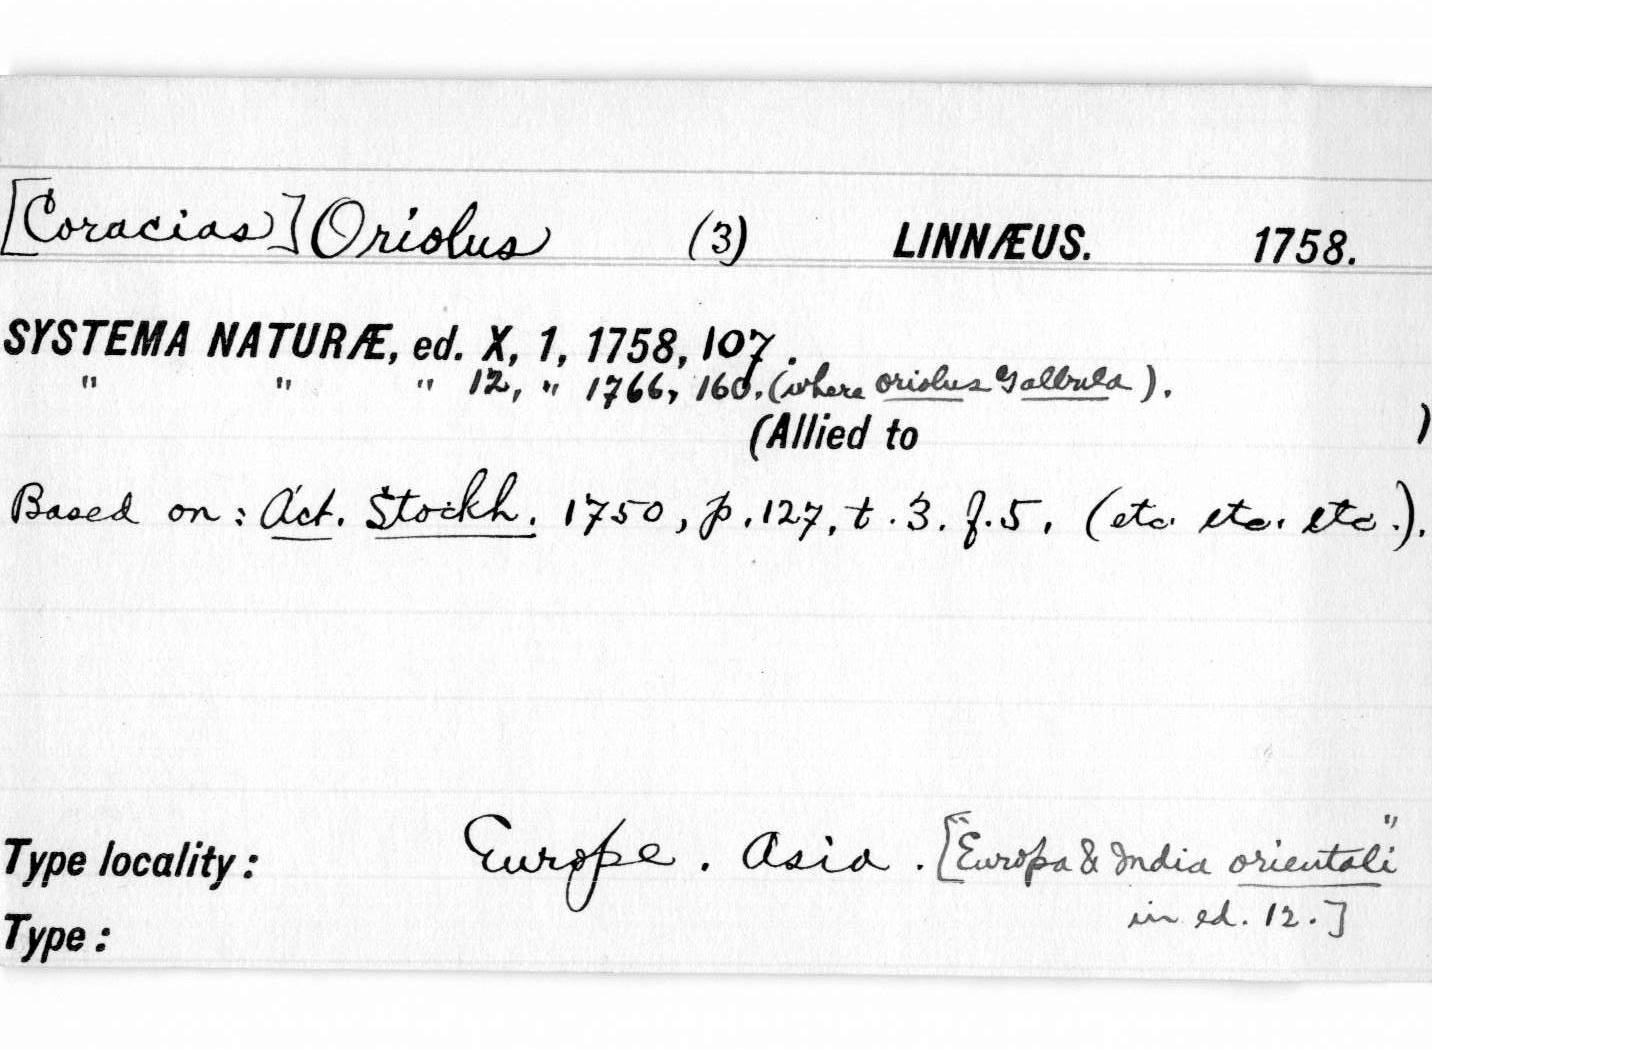 [Coracias] Oriolus (3) LINNÆUS. 1758.
SYSTEMA NATURÆ, ed. X, 1, 1758, 107.
" " " 12, " 1766, 160. (where oriolus Galbula).
(Allied to )
Based on: Act. Stockh. 1750, p. 127, t. 3. f. 5. (etc. etc. etc.).
Type locality: Europe. Asia. ["Europa & India orientali"
in ed. 12.]
Type: